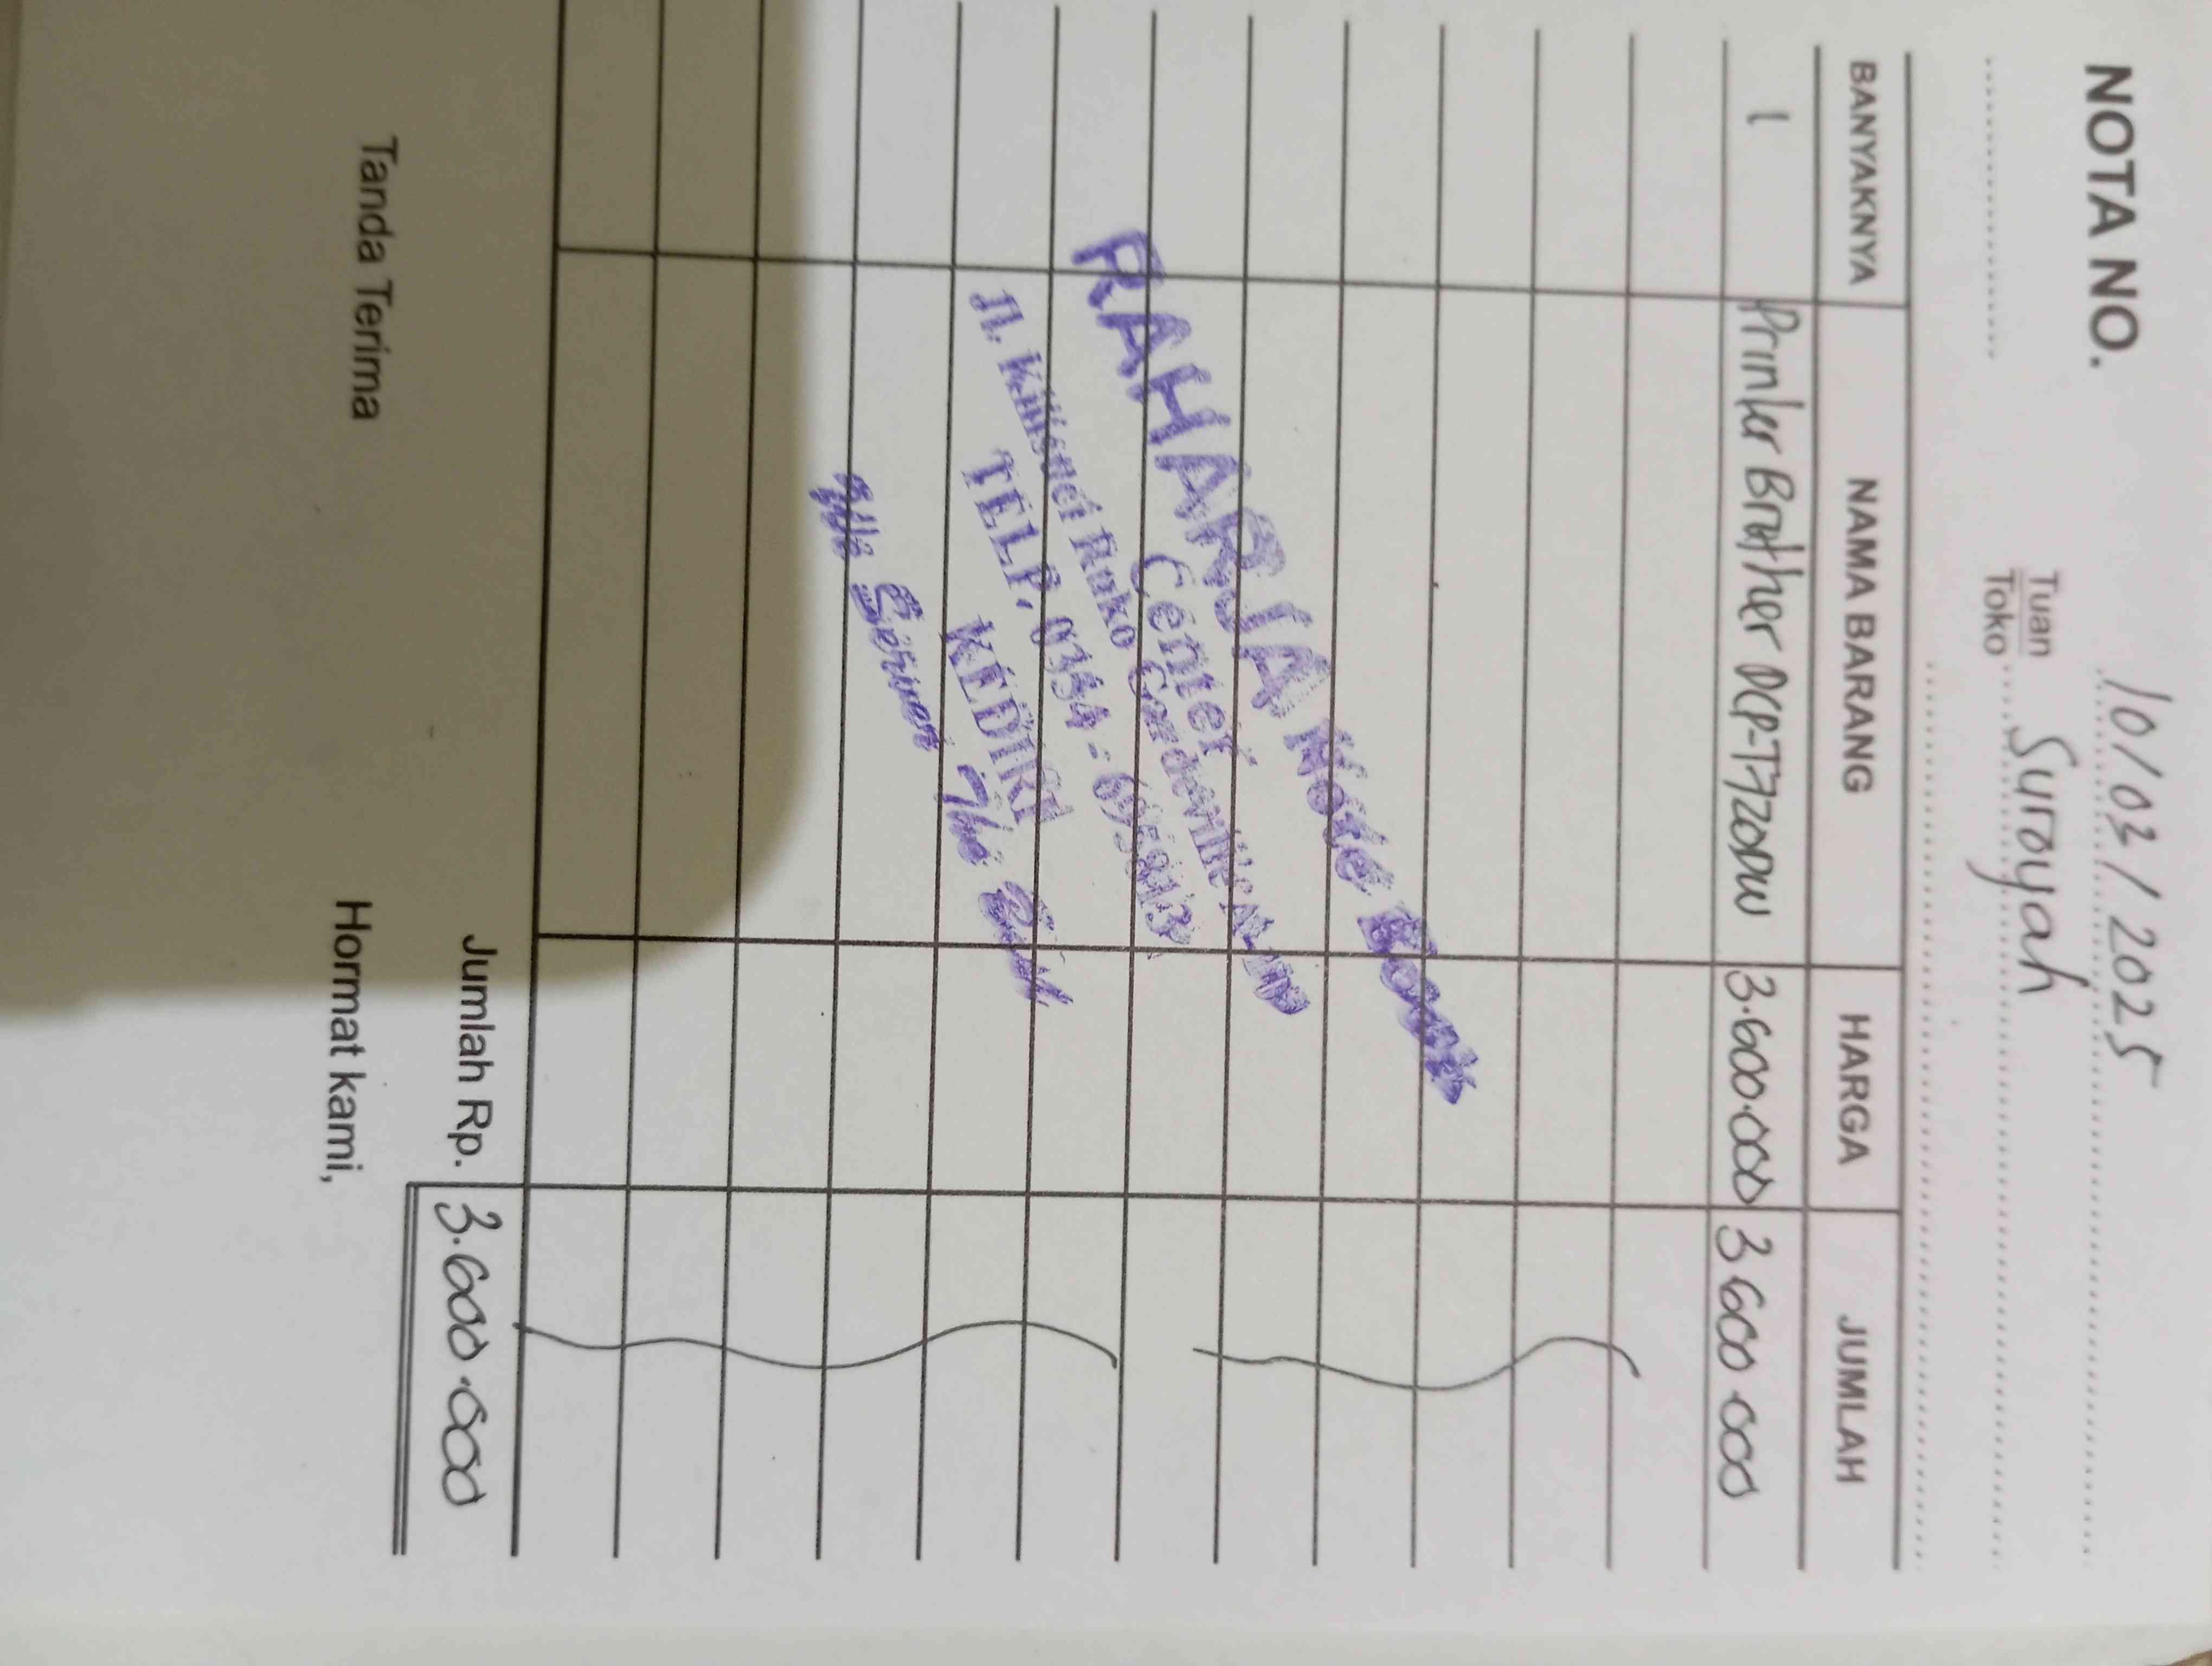 10/03/2025
NOTA NO.
Tuan
Toko
Suroyah
BANYAKNYA NAMA BARANG HARGA JUMLAH
1 Printer Brother DCP-T720DW 3.600.000 3 600.000
RAHARJA Note Book
Center
Jl. Kilisuci Ruko
TELP. 0354 -
KEDIRI
The Best
Jumlah Rp. 3.600.000
Tanda Terima Hormat kami,